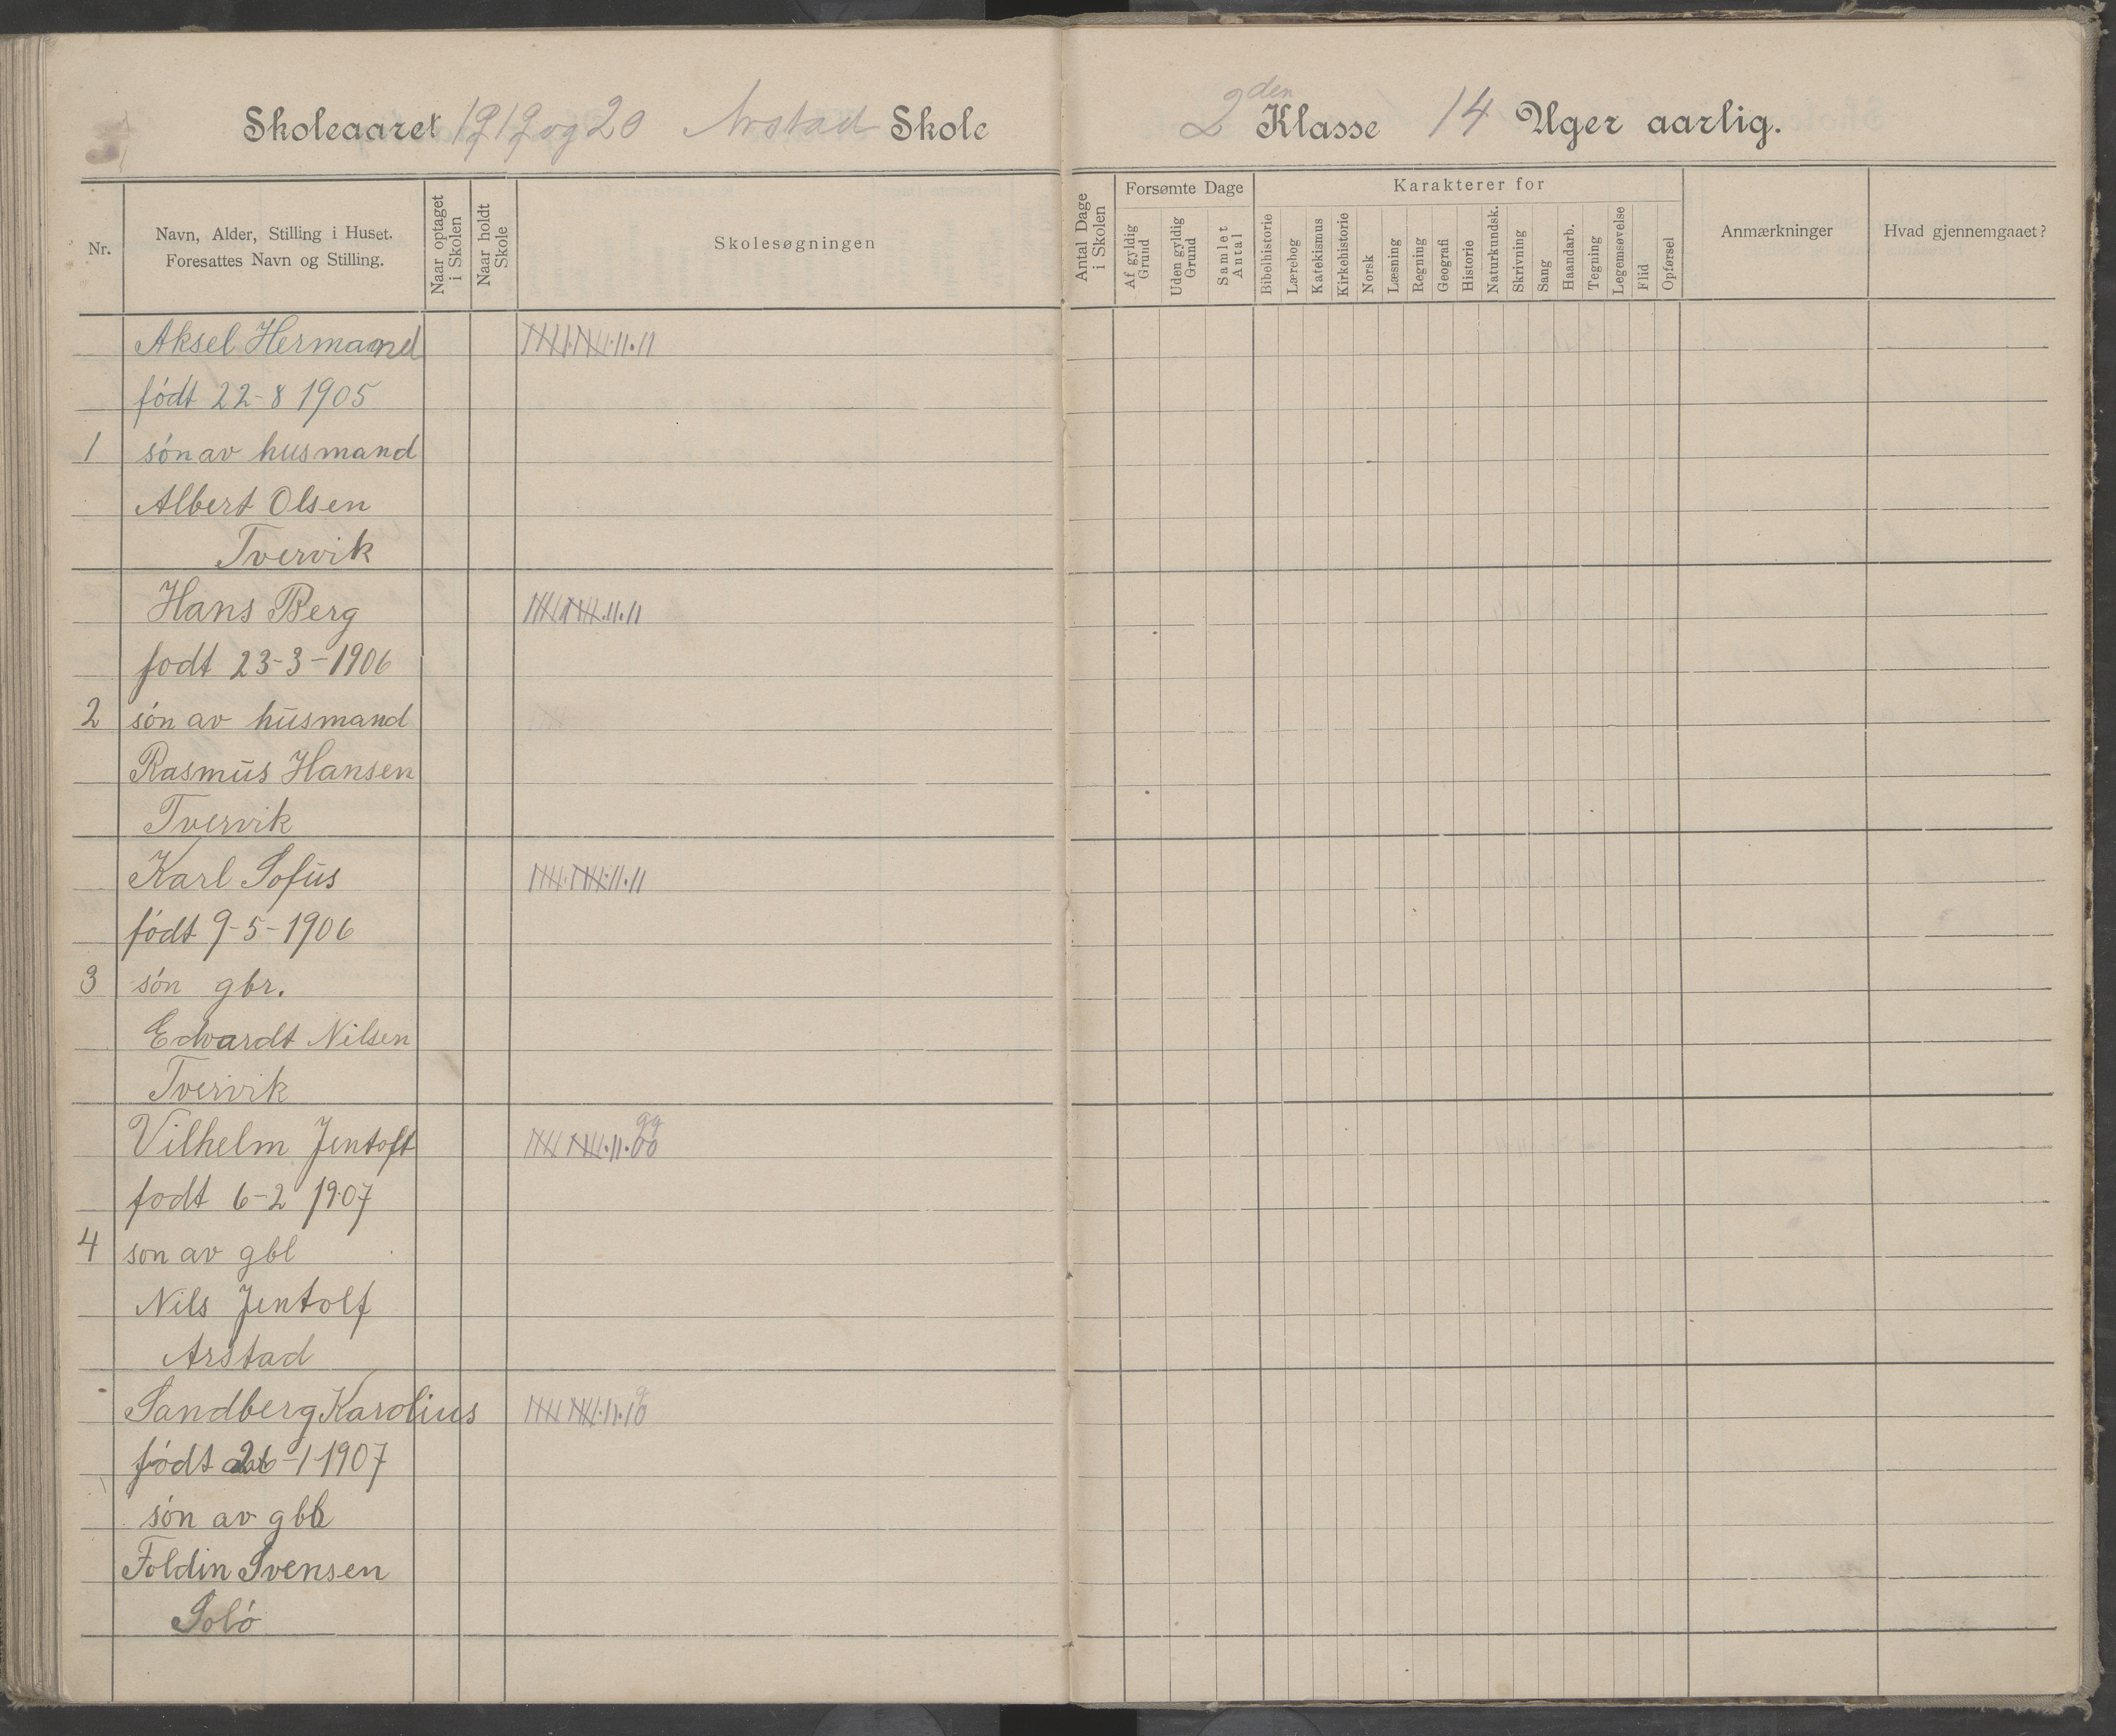 Skoleaaret 1919 og 20 Arstad Skole
2den Klasse 14 Uger aarlig.
Nr.
Navn, Alder, Stilling i Huset.
Foresattes Navn og Stilling.
Naar optaget
i Skolen
Naar holdt
Skole
Skolesøgningen
Antal Dage
i Skolen
Forsømte Dage
Af gyldig
Grund
Uden gyldig
Grund
Samlet
Antal
Karakterer for
Bibelhistorie
Lærebog
Katekismus
Kirkehistorie
Norsk
Læsning
Regning
Geografi
Historie
Naturkundsk.
Skrivning
Sang
Haandarb.
Tegning
Legemsøvelse
Flid
Opførsel
Anmærkninger
Hvad gjennemgaaet?
Aksel Hermand
født 22-8 1905
1 søn av husmand
Albert Olsen
Tvervik
Hans Berg
fodt 23-3-1906
2 søn av husmand
Rasmus Hansen
Tvervik
Karl Sofus
født 9-5-1906
3 søn gbr.
Edvardt Nilsen
Tvervik
Vilhelm Jentoft
fodt 6-2 1907
4 son av gbl
Nils Jentolf
Arstad
Sandberg Karolius
født 26-1-1907
søn av gbb
Foldin Svensen
Solø